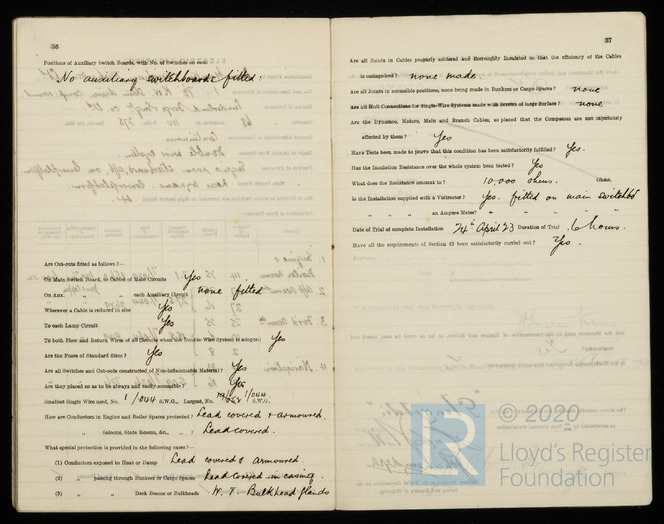 36
Positions of Auxiliary Switch Boards, with No. of Switches on each
No auxiliary switchboards fitted.
Are Cut-outs fitted as follows?—
On Main Switch Board, to Cables of Main Circuits Yes
On Aux. " " each Auxiliary Circuit none fitted
Wherever a Cable is reduced in size Yes
To each Lamp Circuit Yes
To both Flow and Return Wires of all Circuits when the Double-Wire System is adopted Yes
Are the Fuses of Standard Sizes? Yes
Are all Switches and Cut-outs constructed of Non-inflammable Material? Yes
Are they placed so as to be always and easily accessible? Yes
Smallest Single Wire used, No. 1/.044 S.W.G., Largest, No. S.W.G.
How are Conductors in Engine and Boiler Spaces protected? Lead covered & armoured.
" Saloons, State Rooms, &c., " ? Lead covered.
What special protection is provided in the following cases?—
(1) Conductors exposed to Heat or Damp Lead covered & armoured.
(2) " passing through Bunkers or Cargo Spaces Lead covered in casing.
(3) " " Deck Beams or Bulkheads W. T. Bulkhead glands
37
Are all Joints in Cables properly soldered and thoroughly Insulated so that the efficiency of the Cables
is unimpaired? none made.
Are all Joints in accessible positions, none being made in Bunkers or Cargo Spaces? none
Are all Hull Connections for Single-Wire Systems made with Screws of large Surface? none
Are the Dynamos, Motors, Main and Branch Cables, so placed that the Compasses are not injuriously
affected by them? Yes
Have Tests been made to prove that this condition has been satisfactorily fulfilled? Yes.
Has the Insulation Resistance over the whole system been tested? Yes
What does the Resistance amount to? 10,000 ohms. Ohms.
Is the Installation supplied with a Voltmeter? Yes. fitted on main switchbd
" " " an Ampere Meter? " " "
Date of Trial of complete Installation 24th April 23 Duration of Trial 6 hours.
Have all the requirements of Section 42 been satisfactorily carried out? Yes.
© 2020
Lloyd's Register
Foundation